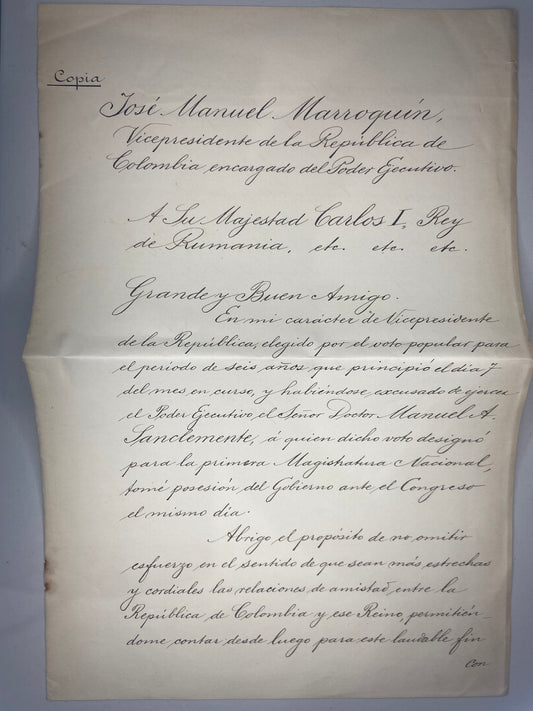 Copia
José Manuel Marroquín,
Vicepresidente de la República de
Colombia encargado del Poder Ejecutivo.
A Su Majestad Carlos I, Rey
de Rumania, etc. etc. etc.
Grande y Buen Amigo.
En mi carácter de Vicepresidente
de la República, elegido por el voto popular para
el período de seis años que principió el día 7
del mes en curso, y habiéndose excusado de ejercer
el Poder Ejecutivo el Señor Doctor Manuel A.
Sanclemente, á quien dicho voto designó
para la primera Magistratura Nacional,
tomé posesión del Gobierno ante el Congreso
el mismo día.
Abrigo el propósito de no omitir
esfuerzo en el sentido de que sean más estrechas
y cordiales las relaciones de amistad entre la
República de Colombia y ese Reino, permitién-
dome contar desde luego para este laudable fin
con